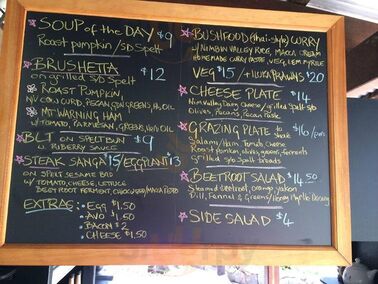 SOUP of the DAY $9
Roast pumpkin / s/o Spelt
BRUSHETTA
on grilled s/o Spelt $12
ROAST PUMPKIN,
NV COW CURD, PECAN GREENS, OIL
MT WARNING HAM
W TOMATO, PARMESAN, GREENS, OIL
BLT ON SPELT BUN $9
W RIBERRY SAUCE
STEAK SANGA $15 / EGGPLANT $13
ON SPELT SESAME BRD
W/ TOMATO, CHEESE, LETTUCE
BEETROOT FERMENT, CHOC MAYO
EXTRAS: • EGG $1.50
• AVO $1.50
• BACON $2
• CHEESE $1.50
BUSHFOOD (thai-style) CURRY
W/ NIMBIN VALLEY RICE, MACCA CREAM
HOMEMADE CURRY PASTE, VEG, LEM MYRTLE
VEG $15 / + ILUKA PRAWNS $20
CHEESE PLATE $14
Nim Valley Dairy Cheese / grilled Spelt s/o
Olives, Pecans, Pecan Paste
GRAZING PLATE to share $16 /
Salami / Ham, Tomato, Cheese
Roast pumpkin, olives, greens, ferments
grilled s/o Spelt breads
BEETROOT SALAD $14.50
Steamed Beetroot, orange, yakon
Dill, Fennel & Greens / Honey Myrtle Dressing
SIDE SALAD $4